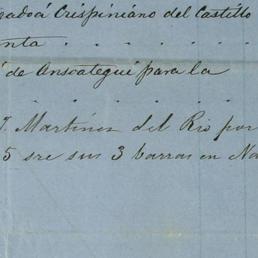 radoá Crispiniano del Castillo
nta . . . . . .
de Anscategui para la
. . . . . .
J. Martinez del Rio por
5 sre sus 3 barras en Na